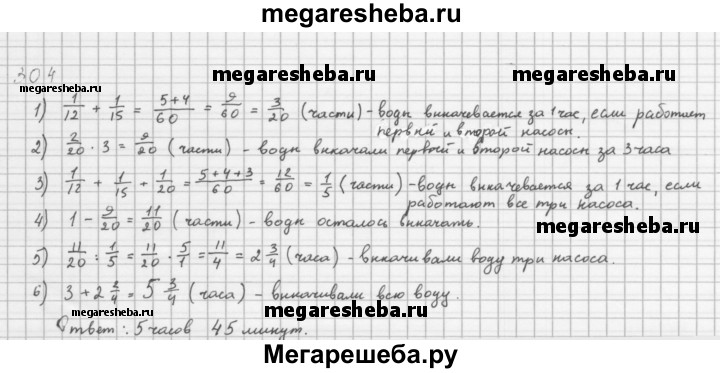 megaresheba.ru
304
megaresheba.ru megaresheba.ru
1) 1/12 + 1/15 = 5+4/60 = 9/60 = 3/20 (части) - воды выкачевается за 1 час, если работает
первый и второй насосы.
2) 3/20 · 3 = 9/20 (части) - воды выкачали первый и второй насосы за 3 часа
3) 1/12 + 1/15 + 1/20 = 5+4+3/60 = 12/60 = 1/5 (части) - воды выкачевается за 1 час, если
работают все три насоса.
4) 1 - 9/20 = 11/20 (части) - воды осталось выкачать.
megaresheba.ru
5) 11/20 : 1/5 = 11/20 · 5/1 = 11/4 = 2 3/4 (часа) - выкачивали воду три насоса.
6) 3 + 2 3/4 = 5 3/4 (часа) - выкачивали всю воду.
megaresheba.ru megaresheba.ru
Ответ: 5 часов 45 минут.
Мегарешеба.ру